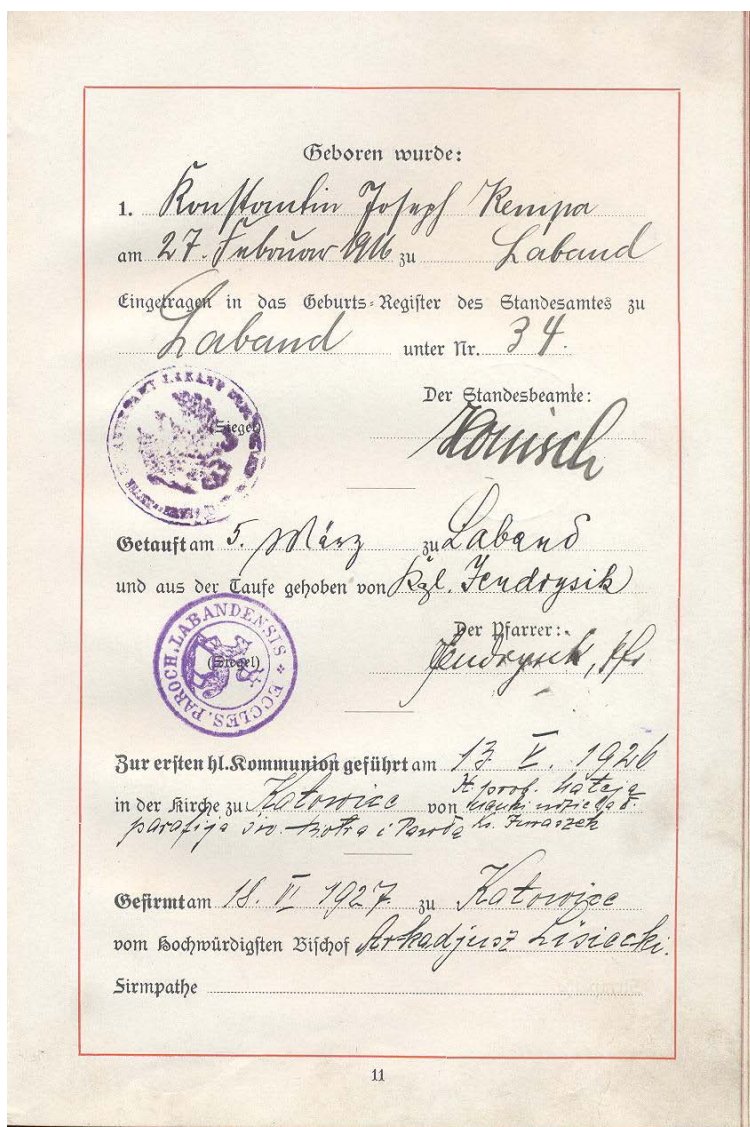 Geboren wurde:
1. Konstantin Joseph Kempa
am 27. Februar 1916 zu Laband
Eingetragen in das Geburts-Register des Standesamtes zu
Laband unter Nr. 34.
Der Standesbeamte:
(Siegel)
Getauft am 5. März zu Laband
und aus der Taufe gehoben von Kgl. Jendrysik
Der Pfarrer:
ECCLES. PAROCH. LABANDENSIS
(Siegel)
Jendrysik, Pfr
Zur ersten hl. Kommunion geführt am 13. V. 1926
in der Kirche zu Katowice von X. prob. Mateja
parafija św. Piotra i Pawła
Gefirmt am 18. VI 1927 zu Katowice
vom Hochwürdigsten Bischof Arkadjusz Lisiecki.
Firmpathe
11